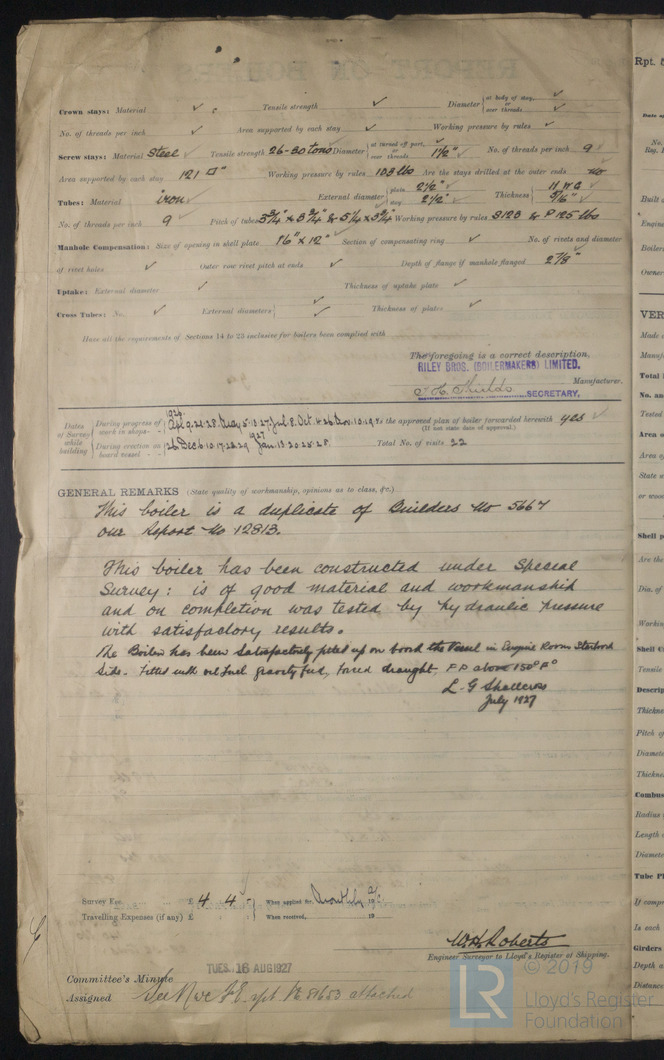 Crown stays: Material ✓ Tensile strength ✓ Diameter { at body of stay, ✓ or over threads ✓
No. of threads per inch ✓ Area supported by each stay ✓ Working pressure by rules ✓
Screw stays: Material Steel Tensile strength 26-30 tons Diameter { at turned off part, ✓ or over threads 1 1/2" ✓ No. of threads per inch 9 ✓
Area supported by each stay 121 □" Working pressure by rules 103 lbs Are the stays drilled at the outer ends No
Tubes: Material iron External diameter { plain 2 1/2" ✓ stay 2 1/2" ✓ Thickness { 11 W G 5/16" ✓
No. of threads per inch 9 Pitch of tubes 3 3/4" x 3 3/4" & 5 1/4 x 3 3/4" Working pressure by rules S 123 & P 125 lbs
Manhole Compensation: Size of opening in shell plate 1'6" x 12" Section of compensating ring ✓ No. of rivets and diameter
of rivet holes ✓ Outer row rivet pitch at ends ✓ Depth of flange if manhole flanged 2 7/8"
Uptake: External diameter ✓ Thickness of uptake plate ✓
Cross Tubes: No. ✓ External diameters { ✓ ✓ Thickness of plates ✓
Have all the requirements of Sections 14 to 23 inclusive for boilers been complied with
The foregoing is a correct description,
RILEY BROS. (BOILERMAKERS) LIMITED.
Manufacturer.
Shields SECRETARY,
Dates of Survey while building
During progress of work in shops - - 1926 Apl 9.21.28. Aug 5.13.27. Jul. 8. Oct.
Is the approved plan of boiler forwarded herewith yes ✓
(If not state date of approval.)
During erection on board vessel - - 1927 Jan. 13.20.25.28. Total No. of visits 22
GENERAL REMARKS (State quality of workmanship, opinions as to class, &c.)
This boiler is a duplicate of Builders No 5667
our Report No 12813.
This boiler has been constructed under Special
Survey: is of good material and workmanship
and on completion was tested by hydraulic pressure
with satisfactory results.
The Boiler has been satisfactorily fitted up on board the Vessel in Engine Room Starboard
Side. Fitted with oil fuel gravity feed, forced draught, F.P. above 150° F°
L. G Shallcross
July 1927
Survey Fee £ 4 : 4 : When applied for, Monthly 19
Travelling Expenses (if any) £ : : When received, 19
W.H. Roberts
Engineer Surveyor to Lloyd's Register of Shipping.
Committee's Minute TUES. 16 AUG 1927
Assigned See attached
© 2019
LR Lloyd's Register
Foundation
Rpt.